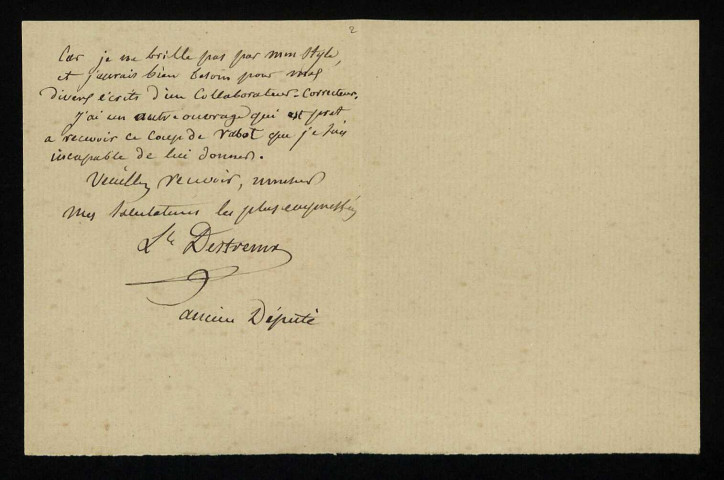 2
Car je ne brille pas par mon style,
et j'aurais bien besoin pour mes
divers écrits d'un Collaborateur-Correcteur.
J'ai un autre ouvrage qui est pret
a recevoir ce coup de rabot que je suis
incapable de lui donner.
Veuillez recevoir, monsieur
mes salutations les plus empressées
Destremx
ancien Député